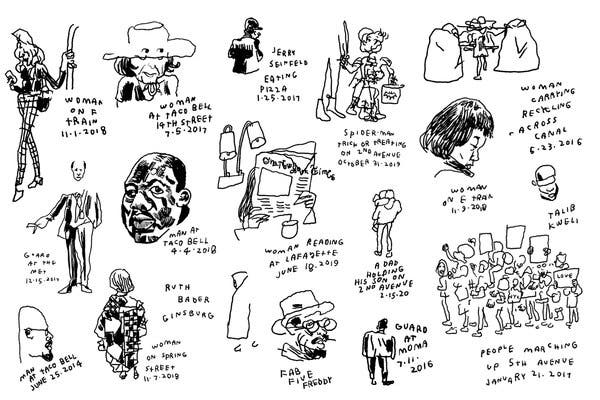 WOMAN
ON F
TRAIN
11.1.2018
WOMAN
AT TACO BELL
14TH STREET
7.5.2017
JERRY
SEINFELD
EATING
PIZZA
1.25.2017
SPIDER-MAN
TRICK OR TREATING
ON 2ND AVENUE
OCTOBER 31.2019
WOMAN
CARRYING
RECYCLING
ACROSS
CANAL
6.23.2016
GUARD
AT THE
MET
12.15.2017
MAN AT
TACO BELL
4.4.2018
WOMAN READING
AT LAFAYETTE
JUNE 18.2019
A DAD
HOLDING
HIS SON ON
2ND AVENUE
2.15.20
WOMAN
ON E TRAIN
11.9.2018
TALIB
KWELI
MAN AT TACO BELL
JUNE 25.2014
WOMAN
ON SPRING
STREET
11.7.2018
RUTH
BADER
GINSBURG
FAB
FIVE
FREDDY
GUARD
AT
MOMA
7.11.
2016
LOVE
PEOPLE MARCHING
UP 5TH AVENUE
JANUARY 21.2017